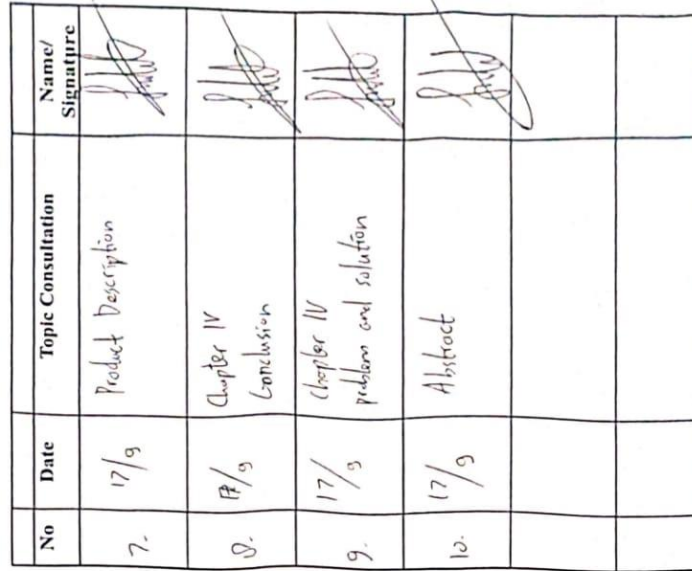 No Date Topic Consultation Name/
Signature
7. 17/9 Product Description
8. 17/9 Chapter IV
Conclusion
9. 17/9 Chapter IV
problems and solution
10. 17/9 Abstract